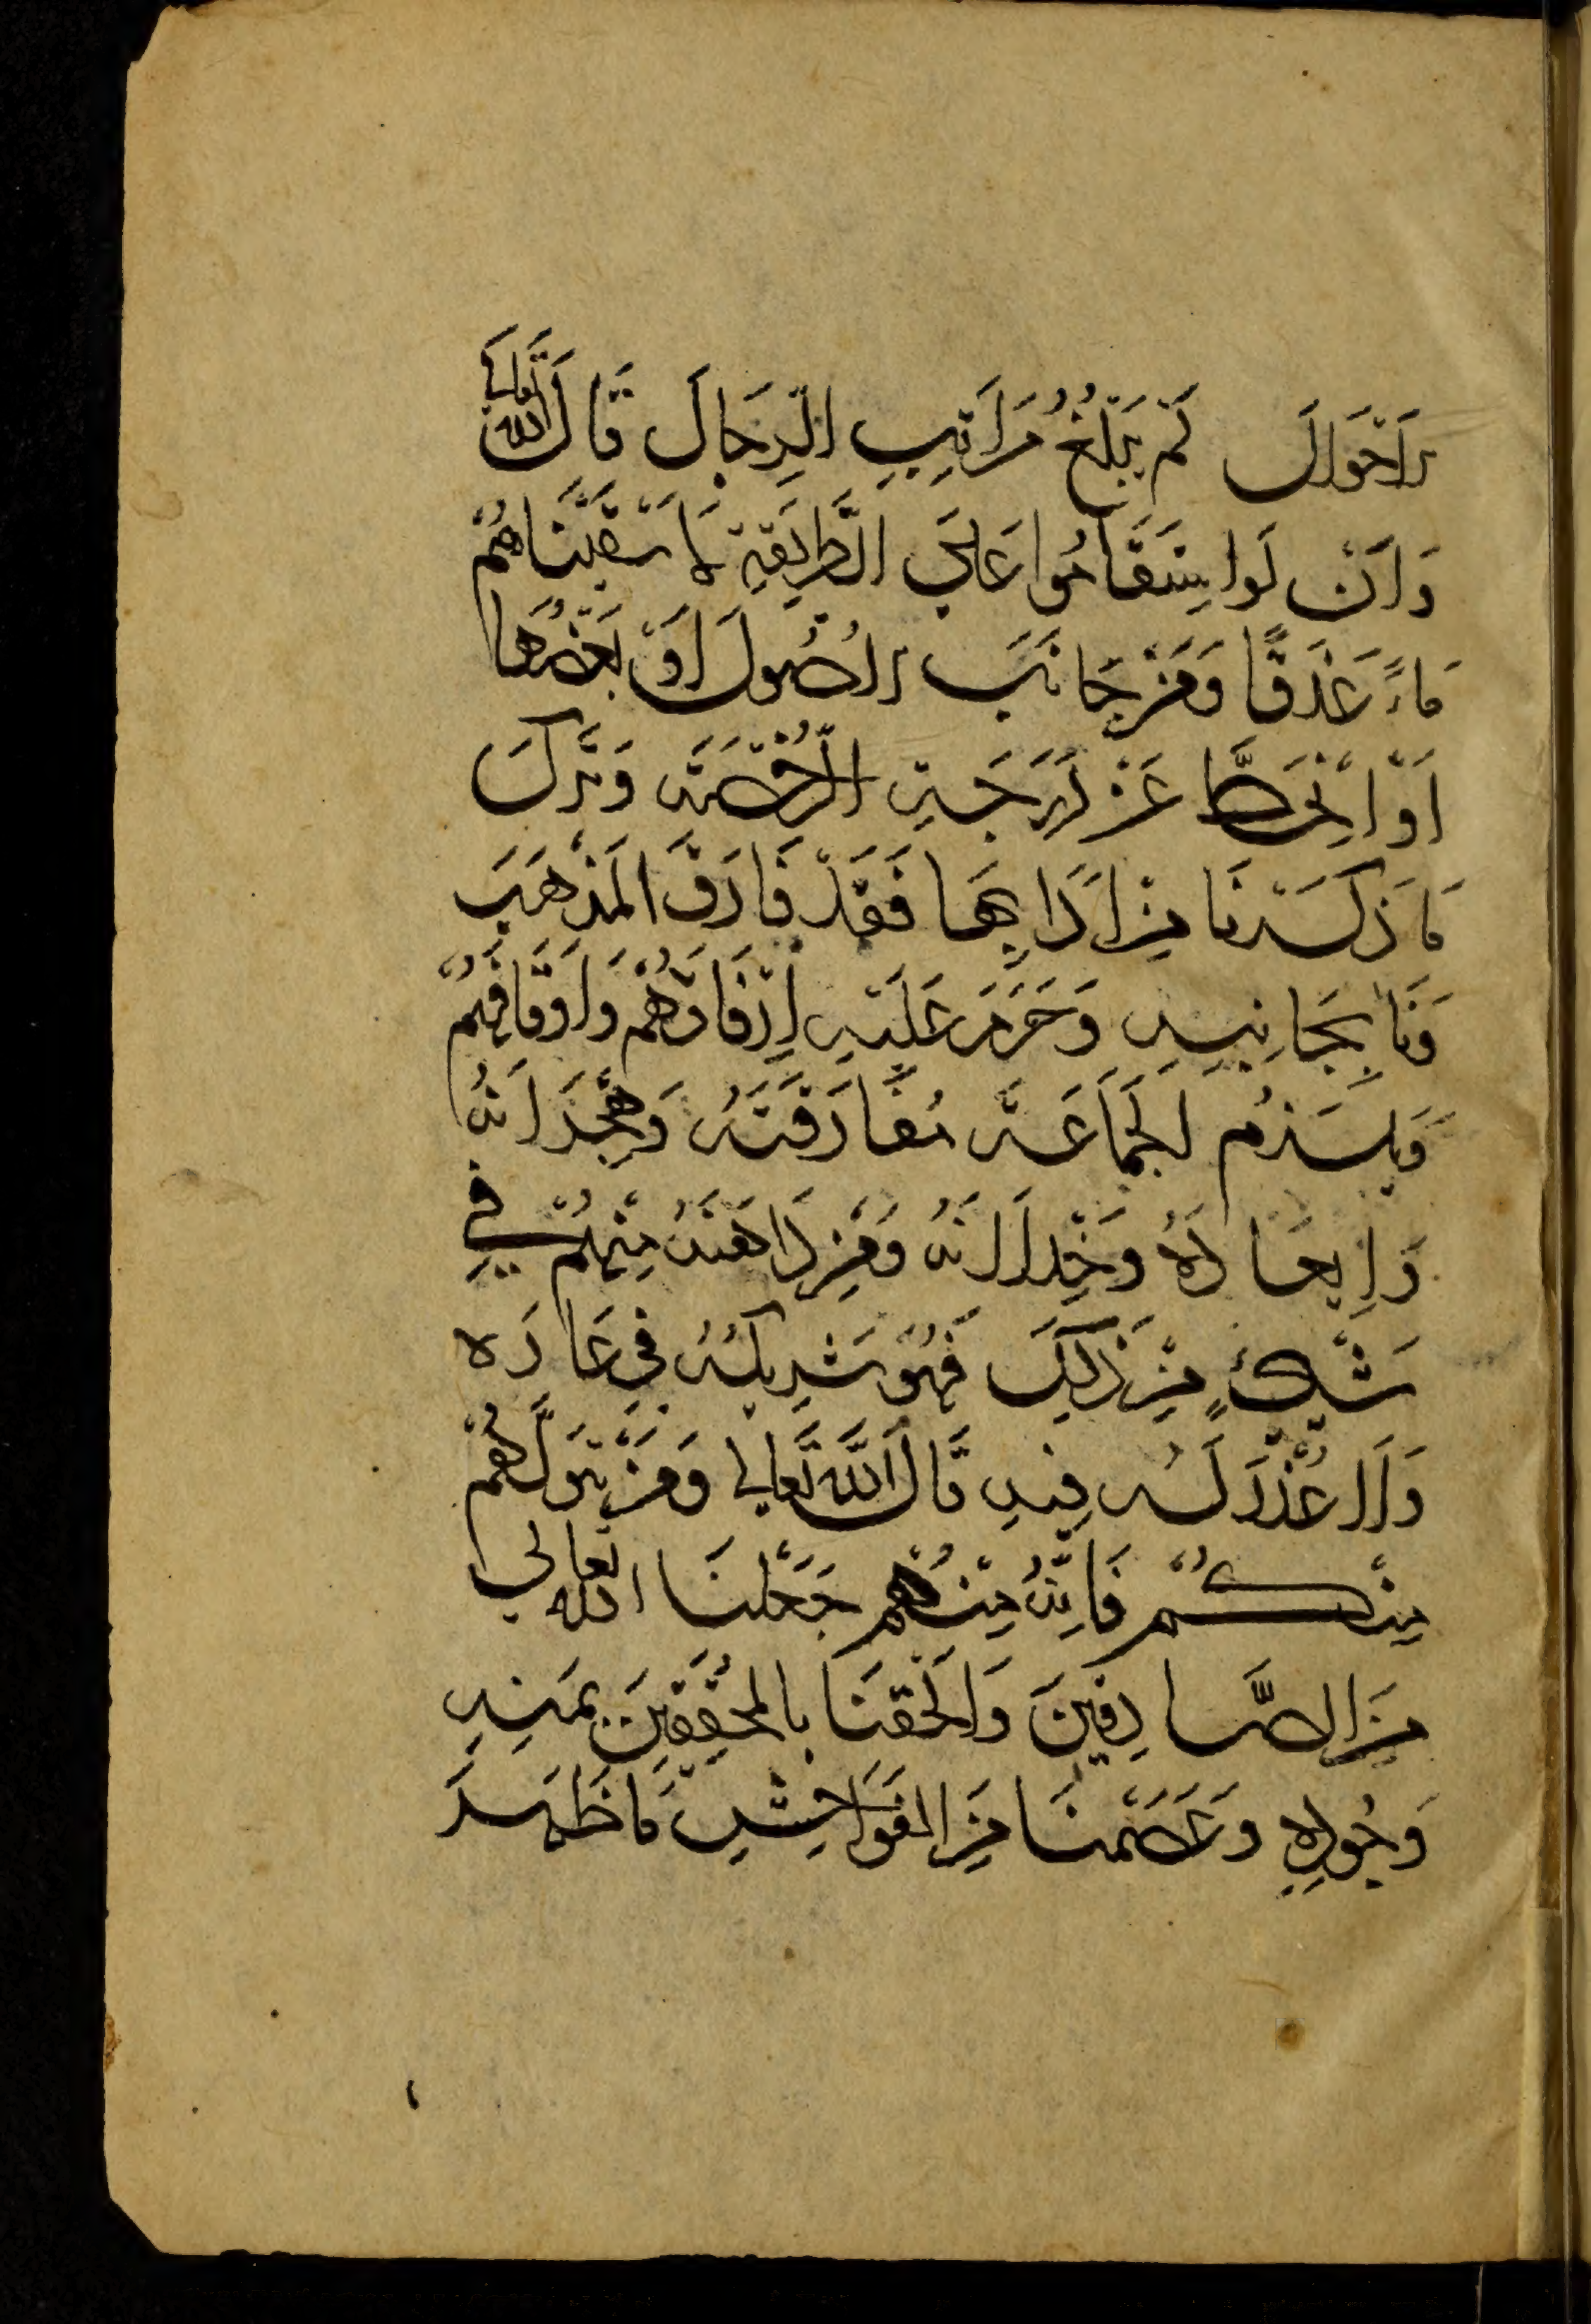 الاَحْوَالَ لَمْ يَبْلُغْ مَرَاتِبِ الرِّجَالِ قَالَ اللهُ تَعَالَى
وَاَنْ لَوِاسْتَقَامُوا عَلَى الطَّرِيقَةِ لَاَسْقَيْنَاهُمْ
مَاءً غَدَقًا وَمَنْ جَانَبَ الاُصُولَ اَوْ بَعْضَهَا
اَوْ اِنْحَطَّ عَنْ دَرَجَةِ الرُّخْصَةِ وَتَرَكَ
مَا ذَكَرْنَا مِنْ اٰدَابِهَا فَقَدْ فَارَقَ الْمَذْهَبَ
وَنَا بِجَانِبِهِ وَحَرُمَ عَلَيْهِ اِرْفَاقُهُمْ وَاَوْقَافُهُمْ
وَيَلْزَمُ الْجَمَاعَةَ مُفَارَقَتُهُ وَهِجْرَانُهُ
وَاِبْعَادُهُ وَخِذْلَانُهُ وَمَنْ دَاهَنَهُ مِنْهُمْ فِي
شَيْءٍ مِنْ ذٰلِكَ فَهُوَ شَرِيكُهُ فِي عَارِهِ
وَلَا عُذْرَ لَهُ فِيهِ قَالَ اللهُ تَعَالَى وَمَنْ يَتَوَلَّهُمْ
مِنْكُمْ فَاِنَّهُ مِنْهُمْ جَعَلَنَا اللهُ تعالى
مِنَ الصَّادِقِينَ وَاَلْحَقَنَا بِالْمُحَقِّقِينَ بِمَنِّهِ
وَجُودِهِ وَعَصَمَنَا مِنَ الْفَوَاحِشِ مَا ظَهَرَ